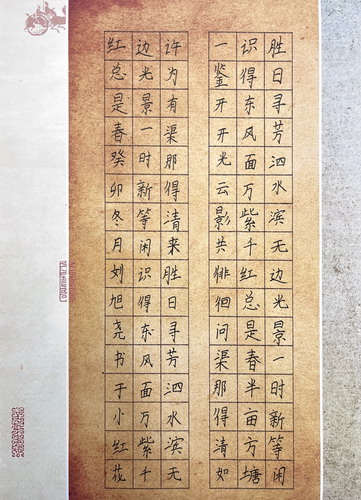 胜日寻芳泗水滨无边光景一时新等闲
识得东风面万紫千红总是春半亩方塘
一鉴开开光云影共徘徊问渠那得清如
许为有渠那得清来胜日寻芳泗水滨无
边光景一时新等闲识得东风面万紫千
红总是春癸卯冬月刘旭尧书于小红花